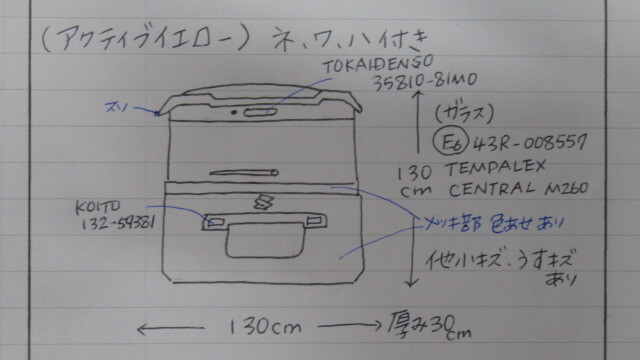 (アクティブイエロー) ネ、ワ、ハイ付き
TOKAIDENSO
35810-81M0
スリ
(ガラス)
E6 43R-008557
130 cm
TEMPALEX
CENTRAL M260
KOITO
132-59381
メッキ部 色あせあり
他小キズ、うすキズ
あり
130cm
厚み30cm